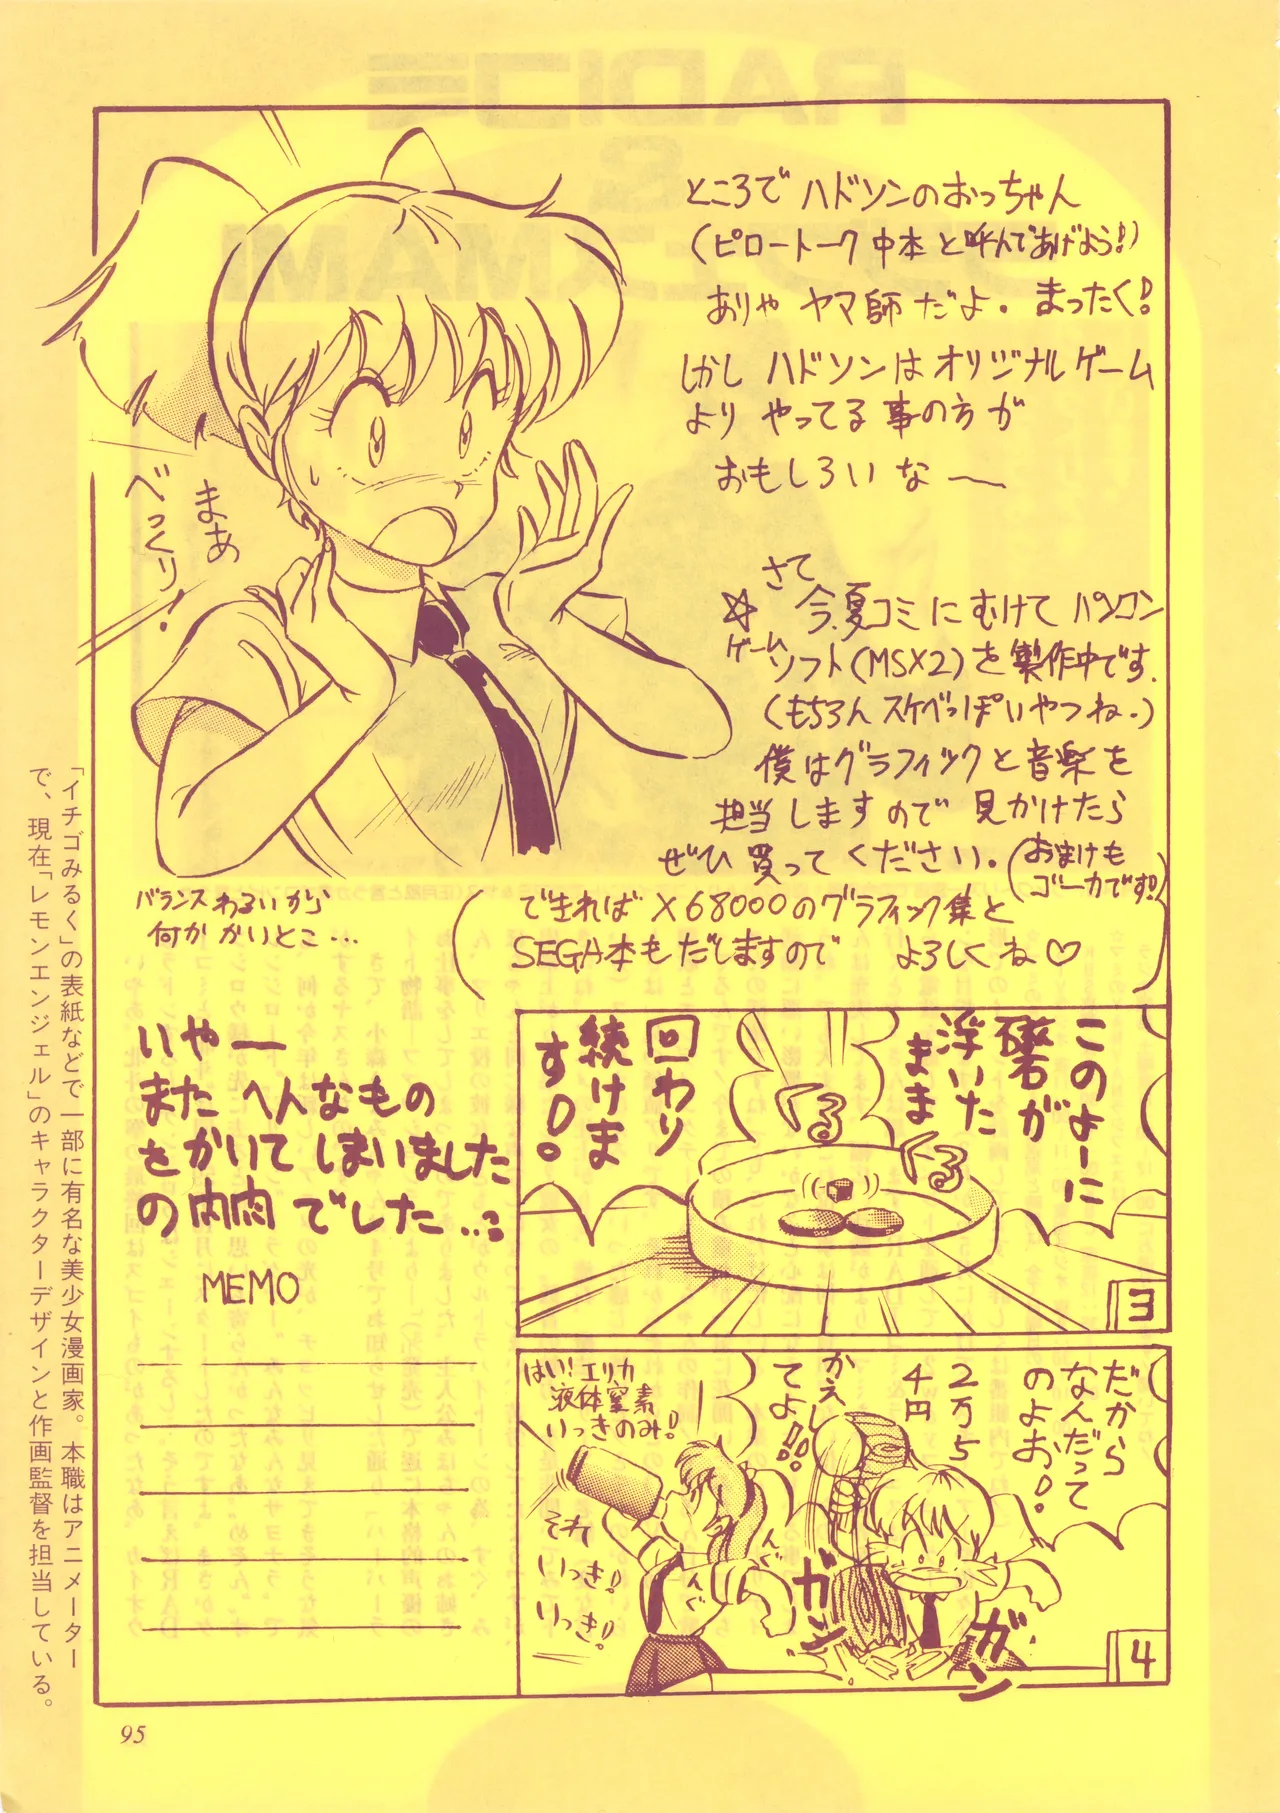 ところでハドソンのおっちゃん
(ピロートーク中本と呼んであげよう!)
ありゃヤマ師だよ。まったく!
しかしハドソンはオリジナルゲーム
よりやってる事の方が
おもしろいな〜
まあ
べっくり!
さて
☆今、夏コミにむけてパソコン
ゲームソフト(MSX2)を製作中です。
(もちろんスケベっぽいやつね。)
僕はグラフィックと音楽を
担当しますので見かけたら
ぜひ買ってください。(おまけも
ゴーカです!)
(できればX68000のグラフィック集と
SEGA本もだしますので よろしくね♡)
バランスわるいから
何かかいとこ…
いやー
またへんなもの
をかいてしまいました
の内肉でした…
MEMO
このよーに
磁石が
浮いた
まま
回わり
続けま
す!
くるくる
3
だから
なんだって
のよお!
2万5
4円
かえし
てよ!!
はい!エリカ
液体窒素
いっきのみ!
それ
いっき!
いっき!
んぐ
んぐ
ガン
ガン
4
「イチゴみるく」の表紙などで一部に有名な美少女漫画家。本職はアニメーター
で、現在「レモンエンジェル」のキャラクターデザインと作画監督を担当している。
95